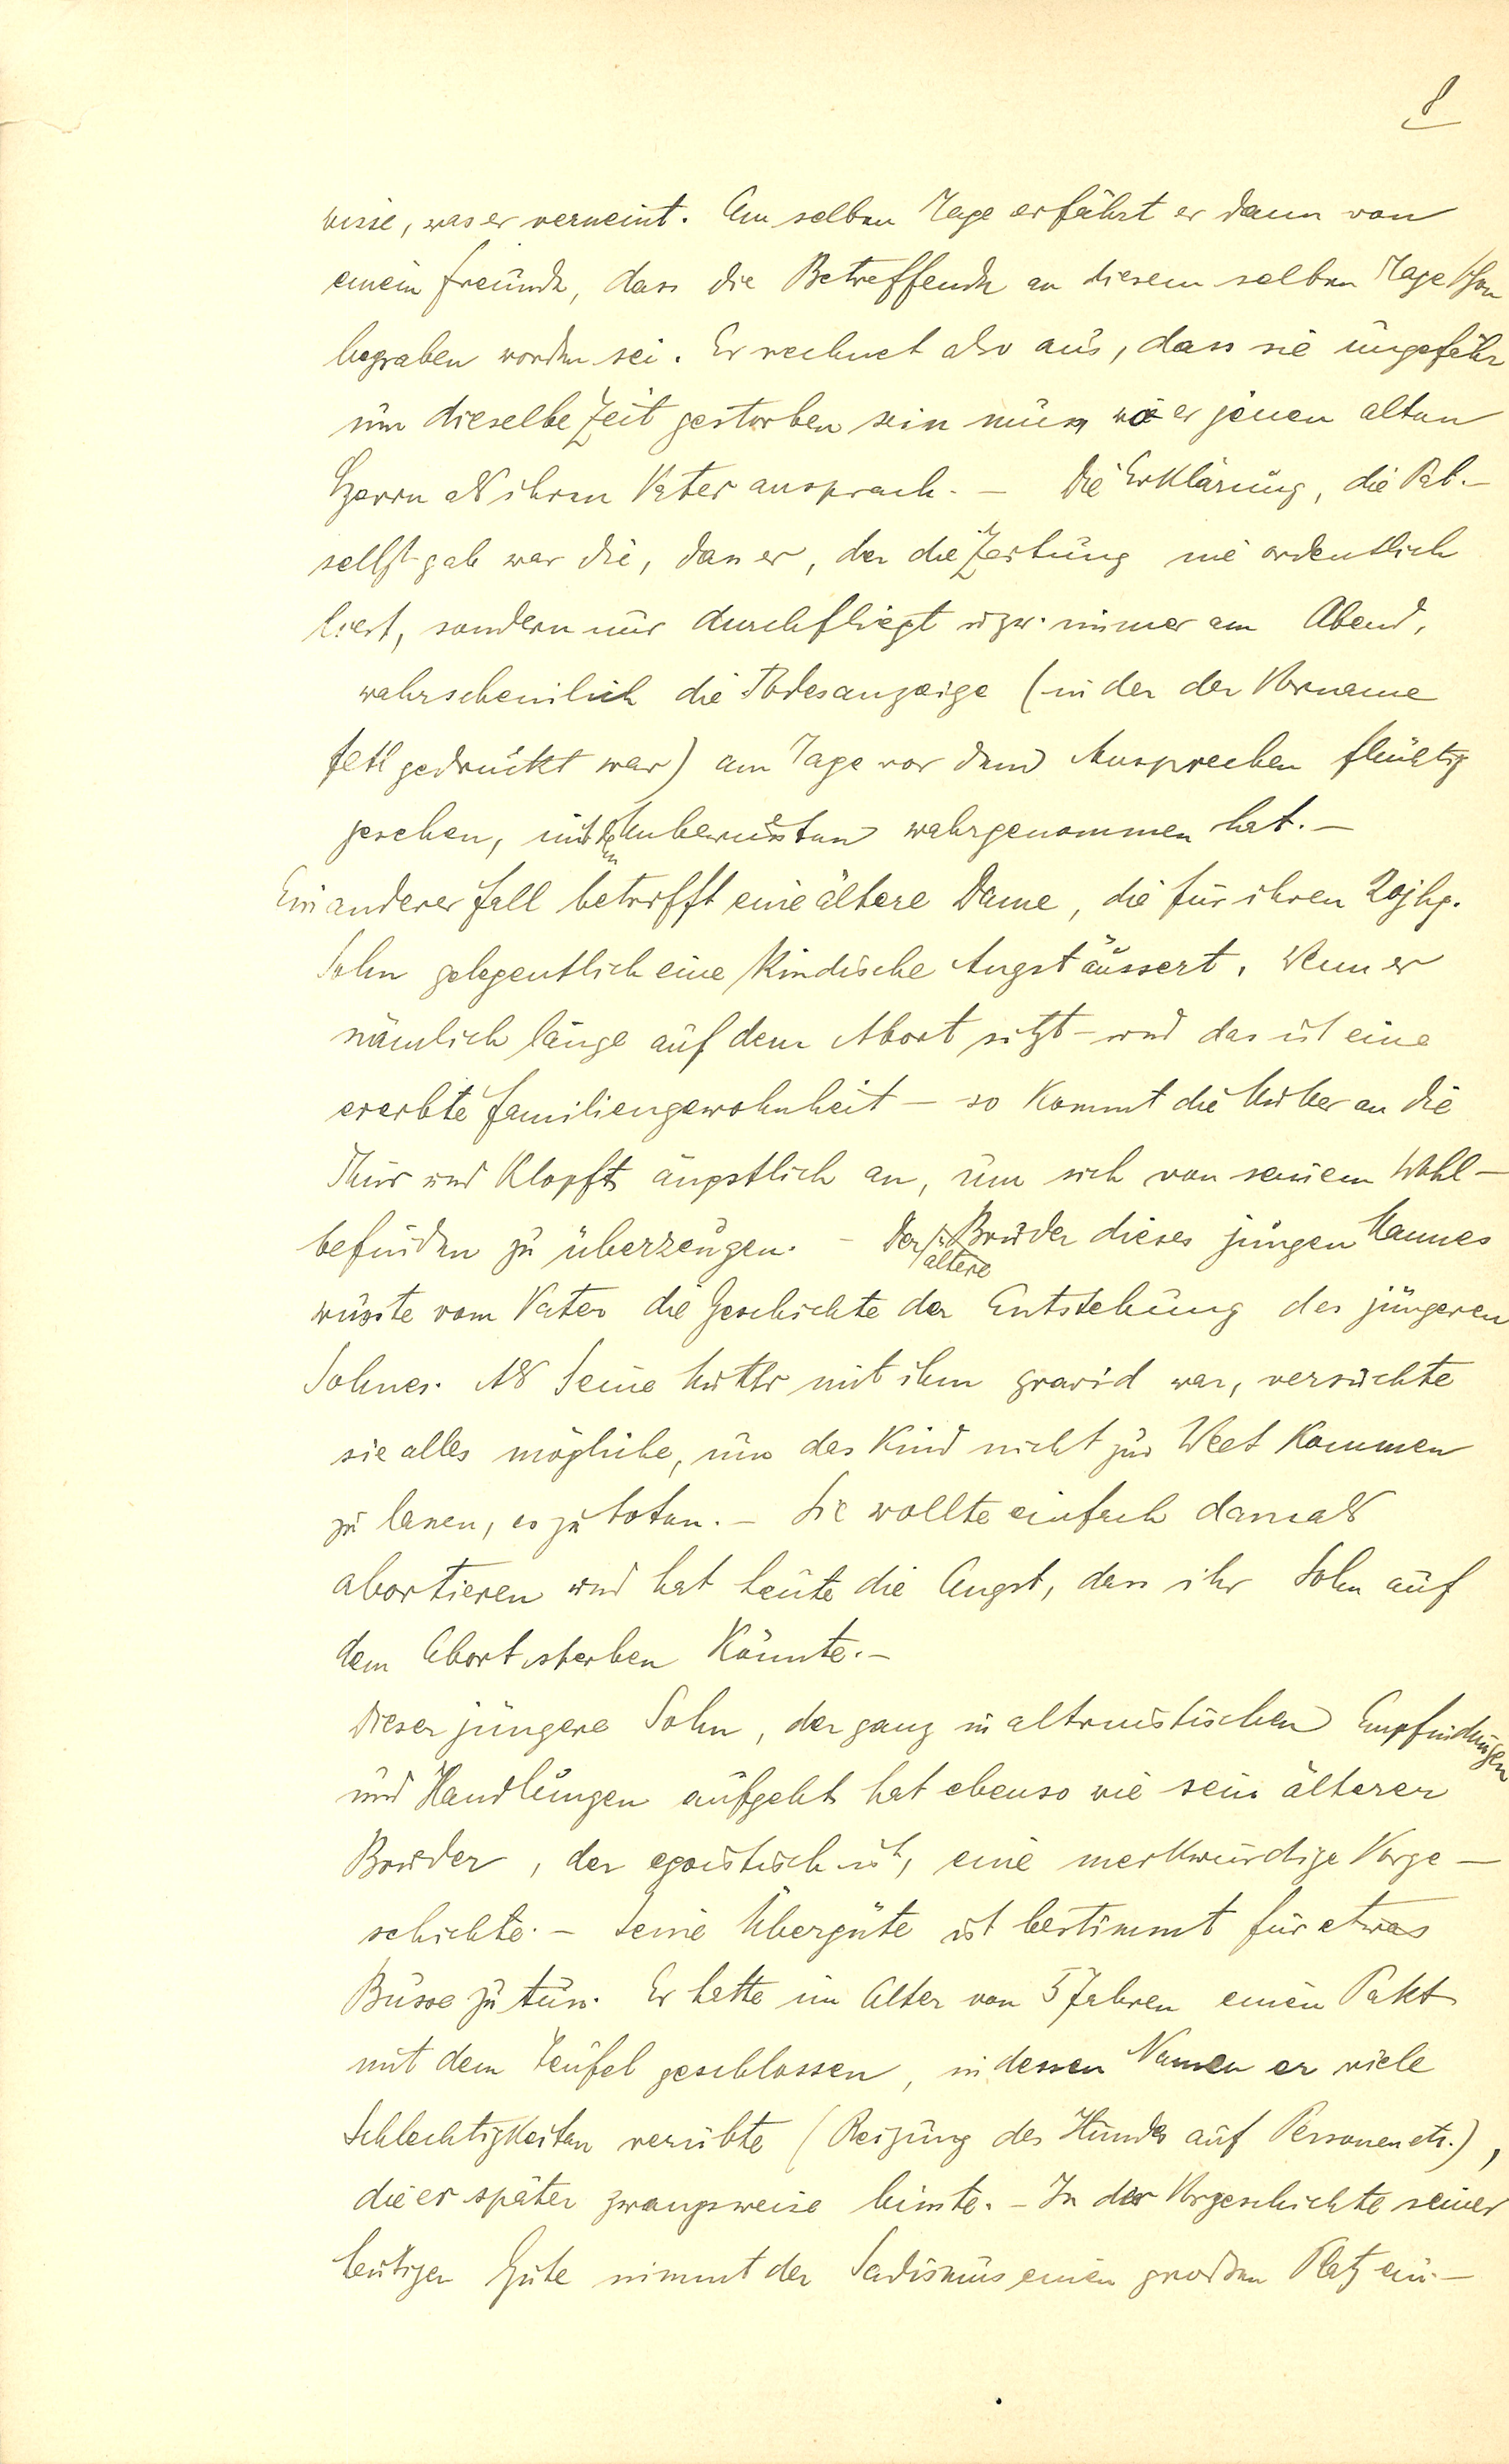 8
wisse, was er verneint. Am selben Tage erfährt er dann von
einem Freunde, dass die Betreffende an diesem selben Tage schon
begraben worden sei. Er rechnet also aus, dass sie ungefähr
um dieselbe Zeit gestorben sein muss, wo er jenen alten
Herrn als ihren Vater ansprach. – Die Erklärung, die Pat. –
selbst gab war die, dass er, der die Zeitung nie ordentlich
liest, sondern nur durchfliegt uzw. immer am Abend,
wahrscheinlich die Todesanzeige (in der der Vorname
fett gedruckt war) am Tage vor dem Ansprechen flüchtig
gesehen, mit dem Unbewussten wahrgenommen hat. –
Ein anderer Fall betrifft eine ältere Dame, die für ihren 20jhg.
Sohn gelegentlich eine kindische Angst äussert. Wenn er
nämlich lange auf dem Abort sitzt – und das ist eine
ererbte Familiengewohnheit – so kommt die Mutter an die
Thür und klopft ängstlich an, um sich von seinem Wohl-
befinden zu überzeugen. – Der ältere Bruder dieses jungen Mannes
wusste vom Vater die Geschichte der Entstehung des jüngeren
Sohnes. Als seine Mutter mit ihm gravid war, versuchte
sie alles mögliche, um das Kind nicht zur Welt kommen
zu lassen, es zu töten. – Sie wollte einfach damals
abortieren und hat heute die Angst, dass ihr Sohn auf
dem Abort sterben könnte. –
Dieser jüngere Sohn, der ganz in altruistischen Empfindungen
und Handlungen aufgeht hat ebenso wie sein älterer
Bruder, der egoistisch ist, eine merkwürdige Vorge-
schichte. – Seine Übergüte ist bestimmt für etwas
Busse zu tun. Er hatte im Alter von 5 Jahren einen Pakt
mit dem Teufel geschlossen, in dessen Namen er viele
Schlechtigkeiten verübte (Reizung des Hundes auf Personen etc.),
die er später zwangsweise büsste. – In der Vorgeschichte seiner
heutigen Güte nimmt der Sadismus einen grossen Platz ein. –